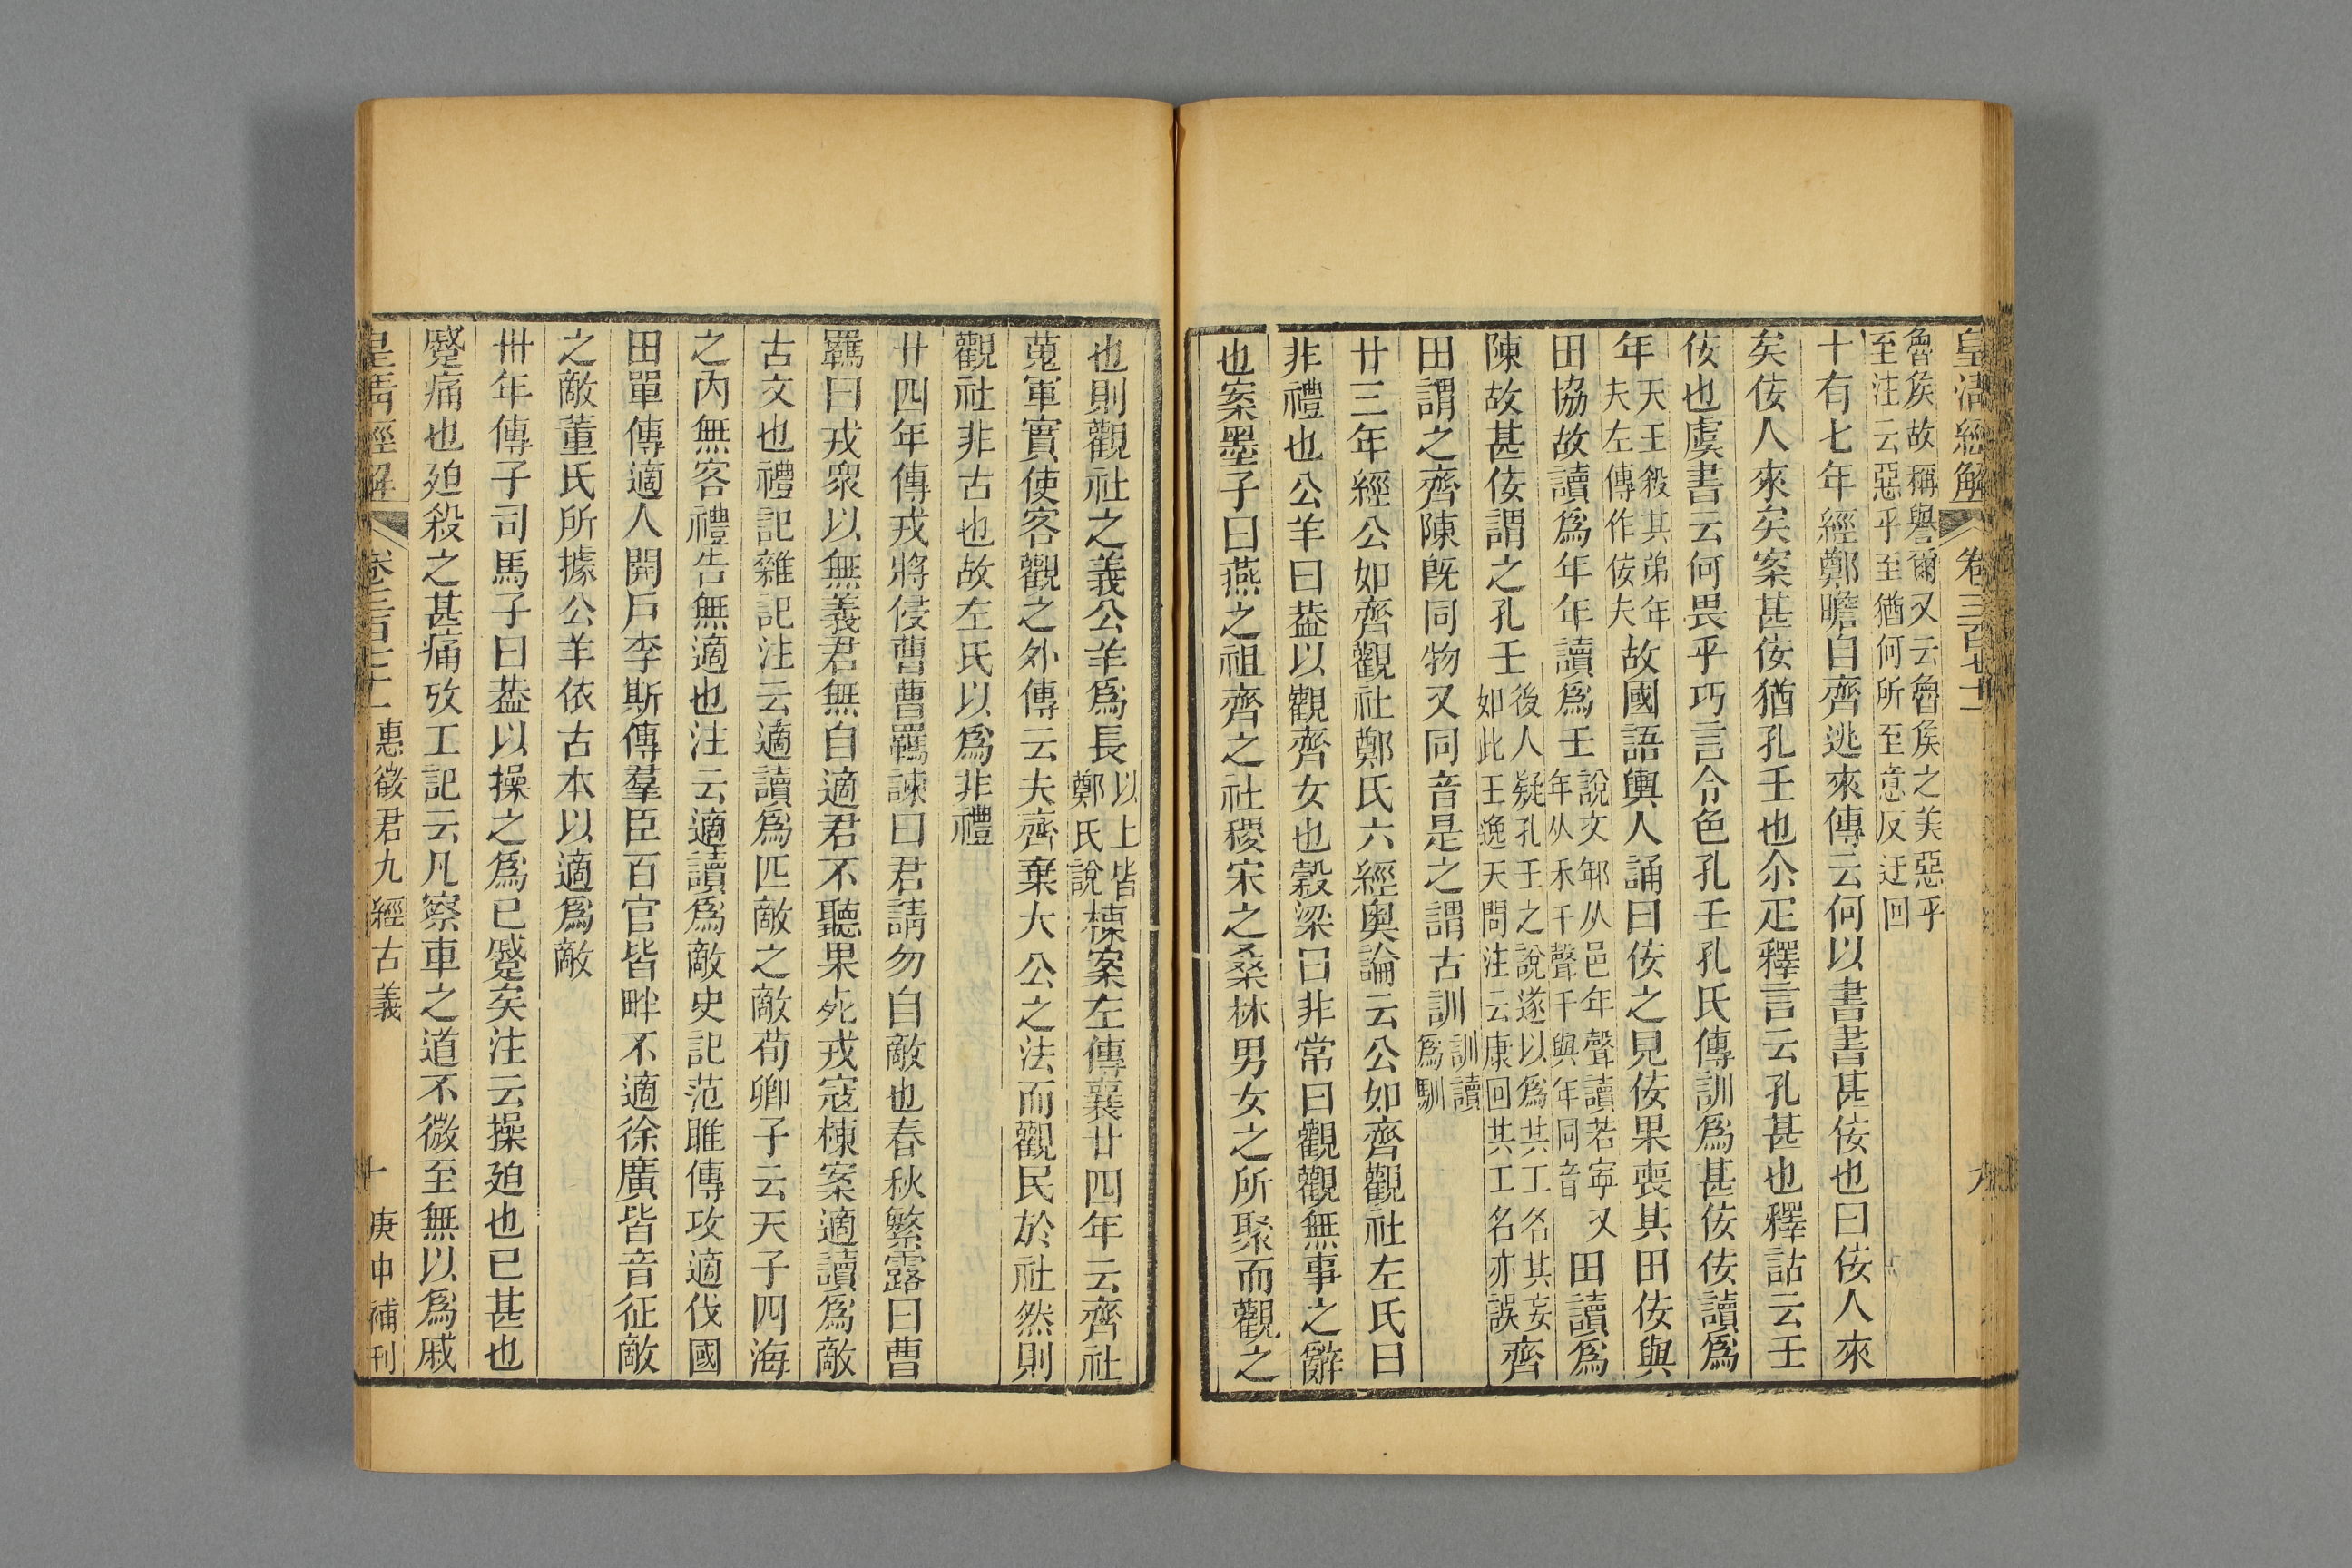 皇清經解 卷三百廿二 九
魯侯故稱譽爾又云魯侯之美惡乎
至注云惡乎至猶何所至意反迂回
十有七年經鄭瞻自齊逃來傳云何以書書甚佞也曰佞人來
矣佞人來矣案甚佞猶孔壬也尒疋釋言云孔甚也釋詁云壬
佞也虞書云何畏乎巧言令色孔壬孔氏傳訓爲甚佞佞讀爲
年天王殺其弟年夫左傳作佞夫故國語輿人誦曰佞之見佞果喪其田佞與
田協故讀爲年年讀爲壬說文邾从邑年聲讀若寧又年从禾千聲千與年同音田讀爲
陳故甚佞謂之孔壬後人疑孔壬之說遂以爲共工名其妄如此王逸天問注云康回共工名亦誤齊
田謂之齊陳旣同物又同音是之謂古訓訓讀爲馴
廿三年經公如齊觀社鄭氏六經奧論云公如齊觀社左氏曰
非禮也公羊曰葢以觀齊女也穀梁曰非常曰觀觀無事之辭
也案墨子曰燕之祖齊之社稷宋之桑林男女之所聚而觀之
也則觀社之義公羊爲長以上皆鄭氏說棟案左傳襄廿四年云齊社
蒐軍實使客觀之外傳云夫齊棄大公之法而觀民於社然則
觀社非古也故左氏以爲非禮
廿四年傳戎將侵曹曹羈諫曰君請勿自敵也春秋繁露曰曹
羈曰戎衆以無義君無自適君不聽果死戎寇棟案適讀爲敵
古文也禮記雜記注云適讀爲匹敵之敵荀卿子云天子四海
之內無客禮告無適也注云適讀爲敵史記范雎傳攻適伐國
田單傳適人開戶李斯傳羣臣百官皆畔不適徐廣皆音征敵
之敵董氏所據公羊依古本以適爲敵
卅年傳子司馬子曰葢以操之爲已蹙矣注云操廹也已甚也
蹙痛也廹殺之甚痛攷工記云凡察車之道不微至無以爲戚
皇清經解 卷三百廿二 惠徵君九經古義 十 庚申補刊